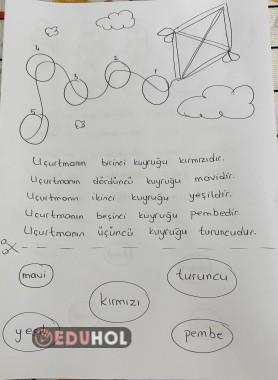 4
2
3
1
5
Uçurtmanın birinci kuyruğu kırmızıdır.
Uçurtmanın dördüncü kuyruğu mavidir.
Uçurtmanın ikinci kuyruğu yeşildir.
Uçurtmanın beşinci kuyruğu pembedir.
Uçurtmanın üçüncü kuyruğu turuncudur.
mavi
turuncu
kırmızı
pembe
EDUHOL